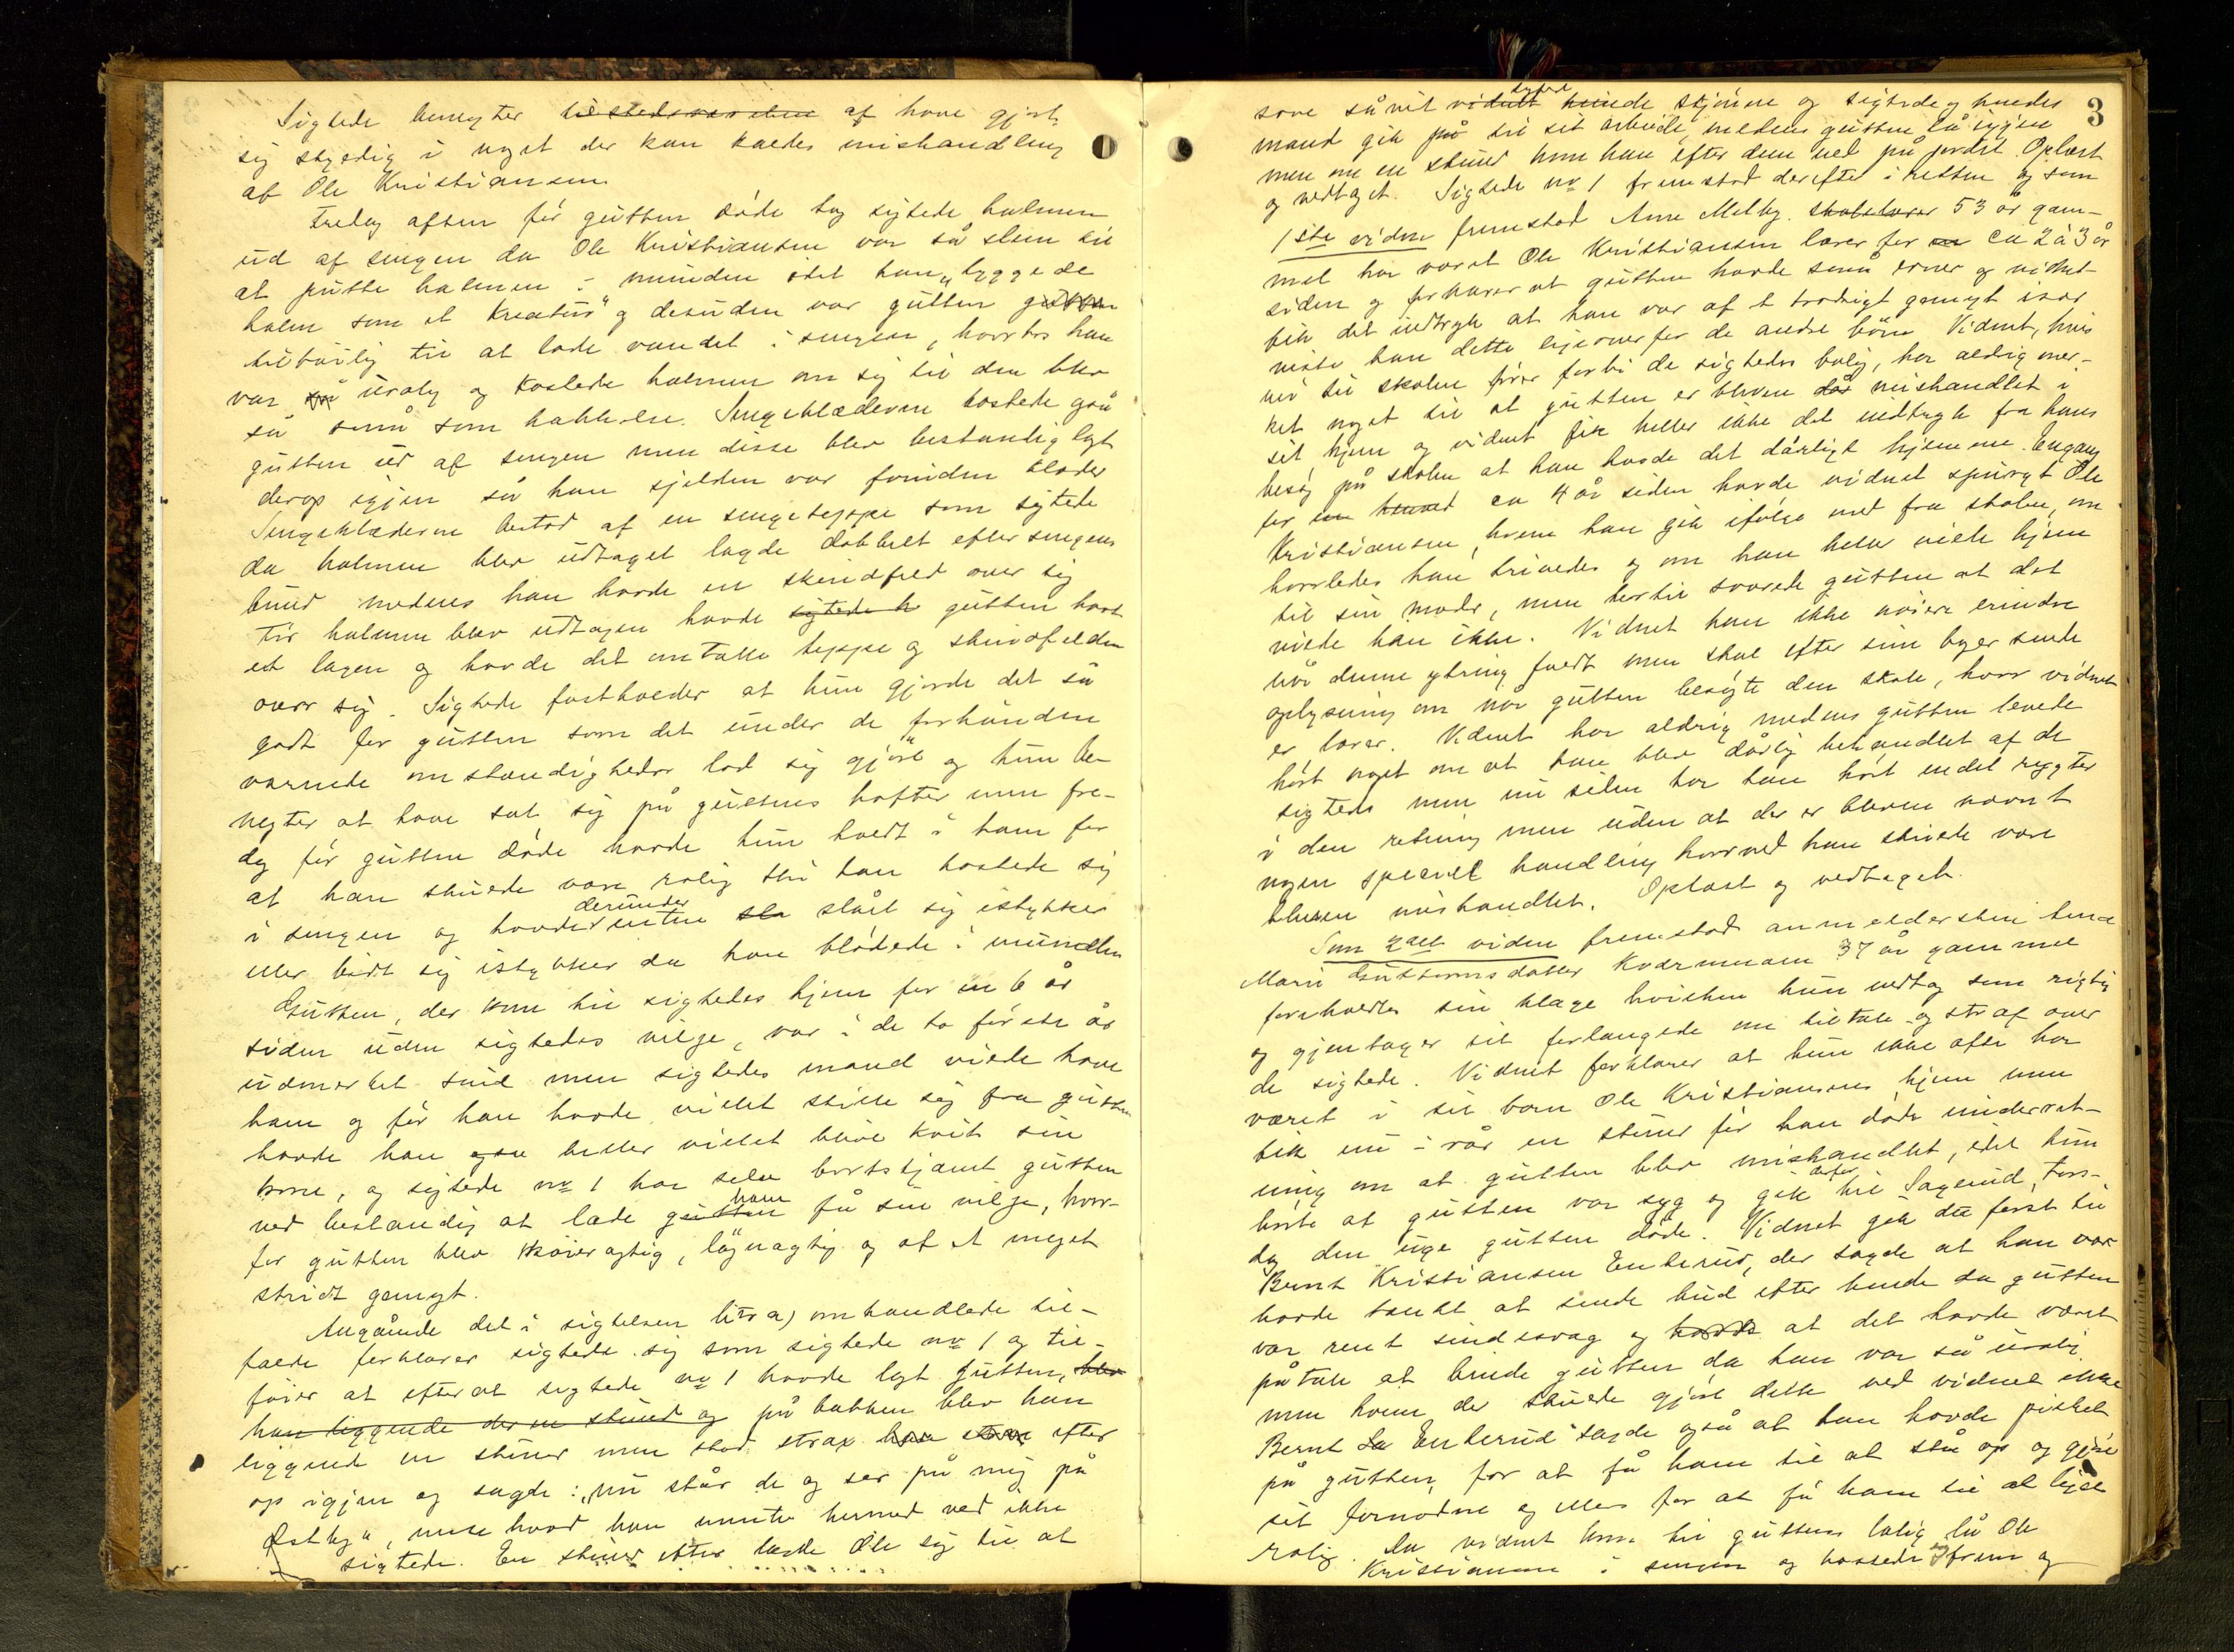 Sigtede benegter tilstedeværelsen af have gjort
sig skyldig i noget der kan kaldes mishandling
af Ole Kristiansen.
Fredag aften før gutten døde tog sigtede halmen
ud af sengen da Ole Kristiansen var så slem til
at putte halmen i munden idet han „tyggede
halm som et kreatur" og desuden var gutten gutten
tilbøilig til at lade vandet i sengen, hvorhos han
var så urolig og kastede halmen om sig til den blev
så små som hakkelse. Sengeklæderne kastede også
gutten ud af sengen men disse blev bestandig lagt
derop igjen så han sjelden var foruden klæder
Sengeklæderne bestod af en sengeteppe som sigtede
da halmen blev udtaget lagde dobbelt efter sengens
bund medens han havde en skindfeld over sig
Før halmen blev udtagen havde sigtede h gutten havt
et lagen og havde det omtalte teppe og skindfelden
over sig. Sigtede fastholder at hun gjorde det så
godt for gutten som det under de forhånden
værende omstændigheder lod sig gjøre og hun be-
negter at have sat sig på guttens hofter men fre-
dag før gutten døde havde hun holdt i ham for
at han skulde være rolig thi han kastede sig
i sengen og havde derunder enten sla slået sig istykker
eller bidt sig istykker da han blødede i munden
Gutten, der kom til sigtedes hjem for en 6 år
siden uden sigtedes vilje, var i de to første år
udmerket snil men sigtedes mand vilde have
ham og før han havde villet skille sig fra gutten
havde han også heller villet blive kvit sin
kone, og sigtede no 1 har selv bortskjæmt gutten
ved bestandig at lade gutten ham få sin vilje, hvor-
for gutten blev skøieragtig, løgnagtig og af et meget
stridt gemyt.
Angående det i sigtelsen litra a) omhandlede til-
fælde forklarer sigtede sig som sigtede no 1 og til-
føier at efterat sigtede no 1 havde lagt gutten, blev
han liggende der en stund og på bakken blev han
liggende en stund men stod strax efter
op igjen og sagde: „nu står de og ser på mig på
Østby", men hvad han mente hermed ved ikke
sigtede. En stund efter lagde Ole sig til at
3
sove såvidt vidnet kunde sigtede skjønne og sigtede og hendes
mand gik på til sit arbeide, medens gutten lå igjen
men om en stund kom han efter dem ned på jordet. Oplæst
og vedtaget. Sigtede no 1 fremstod derefter i retten og som
1ste vidne fremstod Arne Melby. skolelærer 53 år gam-
mel har været Ole Kristiansen lærer for en ca 2 à 3 år
siden og forklarer at gutten havde små evner og vidnet
fik det indtryk at han var af et trodsigt gemyt især
viste han dette ligeoverfor de andre børn Vidnet, hvis
vei til skolen fører forbi de sigtedes bolig, har aldrig mer-
ket noget til at gutten er bleven dår mishandlet i
sit hjem og vidnet fik heller ikke det indtryk fra hans
besøg på skolen at han havde det dårligt hjemme. Engang
for en henved ca 4 år siden havde vidnet spurgt Ole
Kristiansen, hvem han gik ifølge med fra skolen, om
hvorledes han trivedes og om han heller vilde hjem
til sin moder, men hertil svarede gutten at det
vilde han ikke. Vidnet kan ikke nøiere erindre
når denne ytring faldt men skal efter sine bøger sende
oplysning om når gutten besøgte den skole, hvor vidnet
er lærer. Vidnet har aldrig medens gutten levede
hørt noget om at han blev dårlig behandlet af de
sigtede men nu siden har han hørt endel rygter
i den retning men uden at der er bleven nævnt
nogen speciel handling hvorved han skulde være
bleven mishandlet. Oplæst og vedtaget.
Som 2det vidne fremstod anmeldersken
Mari Guttormsdatter Kværnmoen 37 år gammel
foreholdtes sin klage hvilken hun vedtog som rigtig
og gjentager sit forlangede om tiltale og straf over
de sigtede. Vidnet forklarer at hun ikke ofte har
været i sit barn Ole Kristiansens hjem men
fik nu i vår en stund før han døde underret-
ning om at gutten blev mishandlet, idet hun
hørte at gutten var syg og gik til Sagerud, Tors-
dag den uge gutten døde. Vidnet gik da først til
Bernt Kristiansen Enberud, der sagde at han var
havde tænkt at sende bud efter hende da gutten
var rent sindssvag og havde at det havde været
påtale at binde gutten da han var så urolig
men hvem der skulde gjøre dette ved vidnet ikke
Bernt Enberud sagde også at han havde pisket
på gutten, for at få ham til at stå op og gjøre
sit fornødne og ellers for at få ham til at ligge
rolig. Da vidnet kom til guttens bolig lå Ole
Kristiansen i sengen og kastede sig frem og